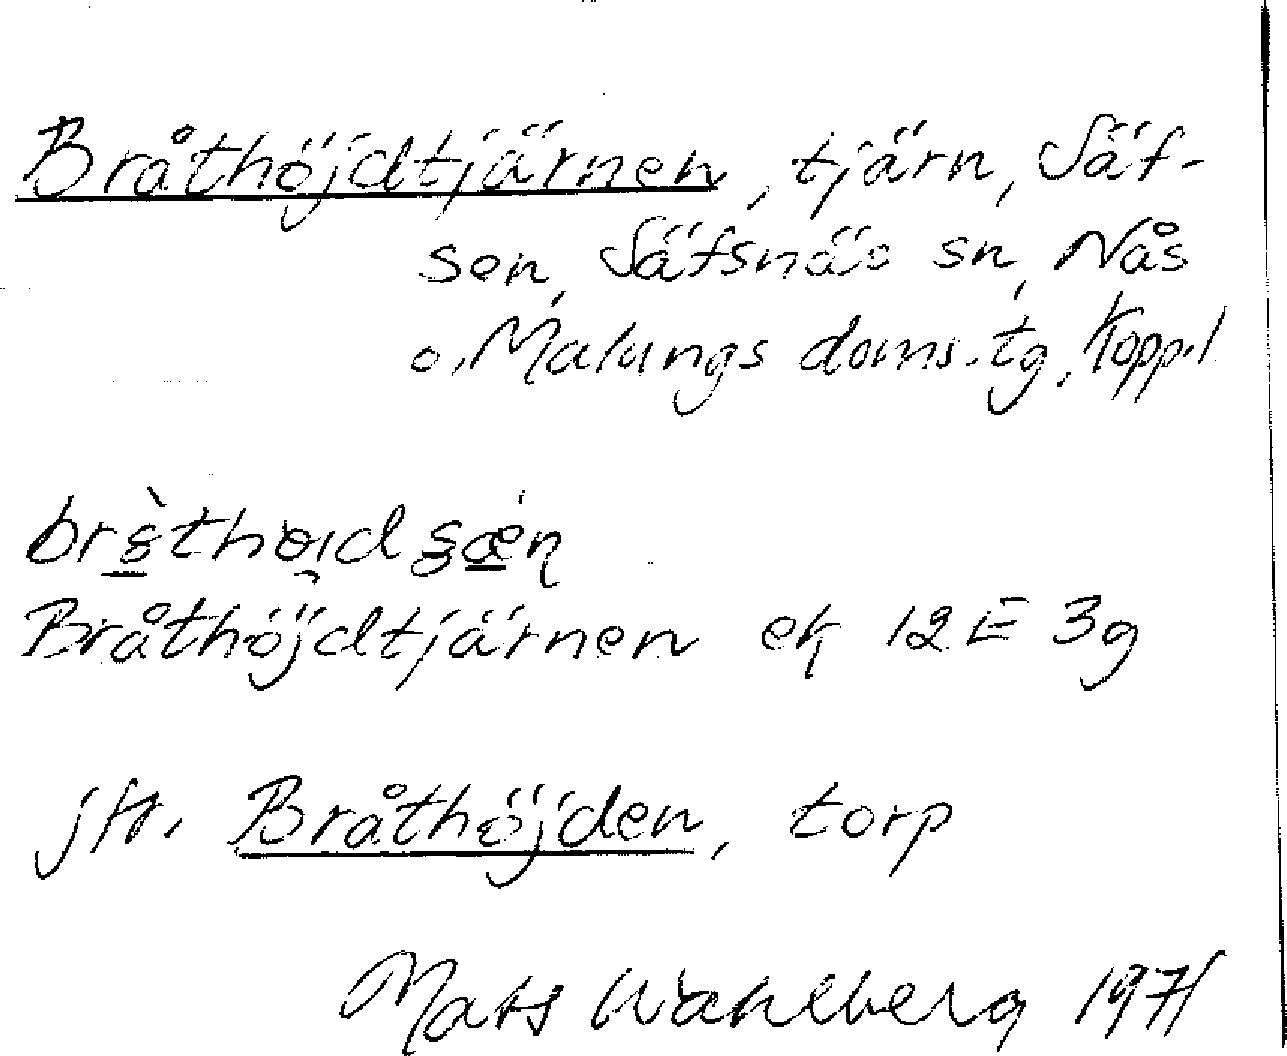 Bråthöjdtjärnen, tjärn, Säf-
sen, Säfsnäs sn, Nås
o. Malungs doms. tg, Kopp. l
Bråthöjdtjärnen ek 12E 3g
jfr. Bråthöjden, torp
Mats Wahlberg 1971